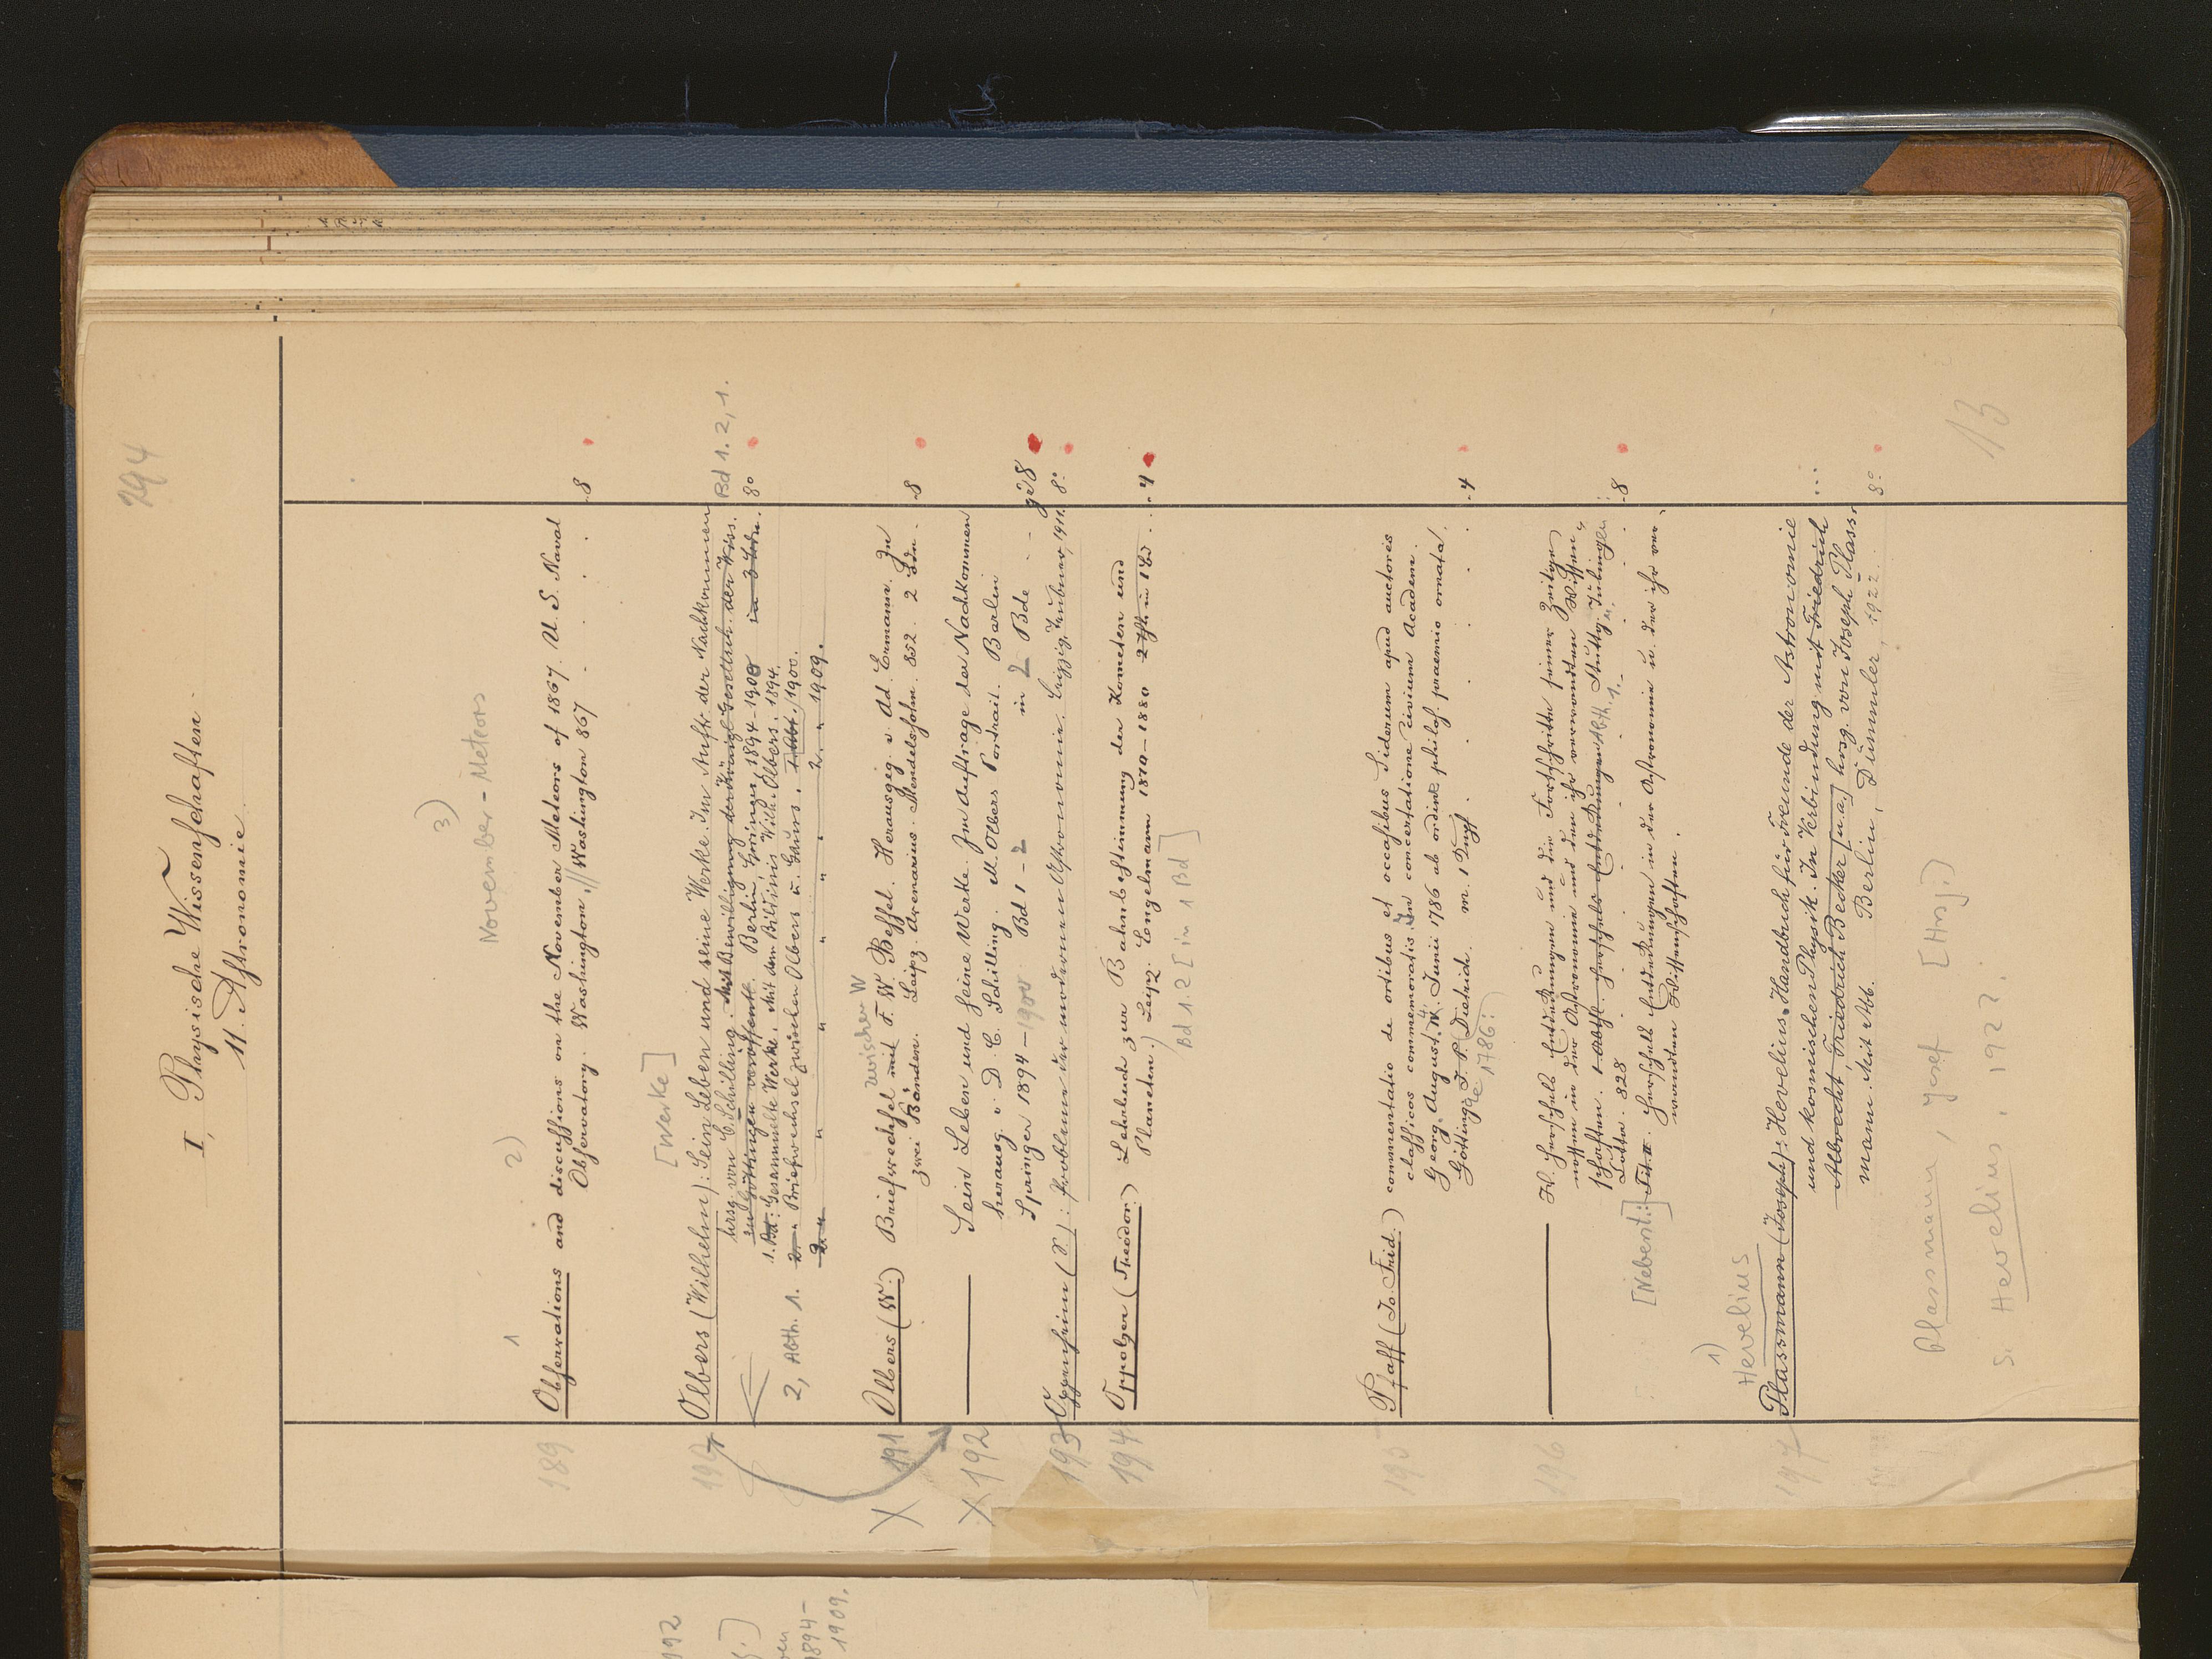 294
I, Physische Wissenschaften.
11. Astronomie.
3)
November-Meteors
1 2)
189 Observations and discussions on the November Meteors of 1867. U. S. Naval
Observatory. Washington, // Washington 867 . . . . 8
[Werke]
Olbers (Wilhelm): Sein Leben und seine Werke. Im Auftr. der Nachkommen Bd 1. 2, 1.
hrsg. von C. Schilling. Mit Bewilligung der Königl. Gesellsch. der Wiss.
zu Göttingen veröffentl. Berlin, Springer, 1894-1900 in 3 Bdn. 8°
1. Bd: Gesammelte Werke. Mit dem Bildnis Wilh. Olbers. 1894.
2, Abth. 1. 2. " Briefwechsel zwischen Olbers u. Gauss. 1. Abt. 1900.
2. " " " " " 2. " 1909.
zwischen W
X 191 Olbers (W.) Briefwechsel mit F. W. Bessel. Herausgeg. v. Ad. Ermann. In
zwei Bänden. Leipz. Avenarius. Mendelssohn. 852. 2 Bdn. 8
X 192 ——— Sein Leben und seine Werke. Im Auftrage der Nachkommen
herausg. v. D. C. Schilling. M. Olbers Portrait. Berlin
Springer 1894 – 1900 Bd 1 – 2 in 2 Bde . . gr 8
193 Oppenheim (S.): Probleme der modernen Astronomie. Leipzig, Teubner, 1911. 8°
194 Oppolzer (Theodor.) Lehrbuch zur Bahnbestimmung der Kometen und
Planeten.) Leipz. Engelmann 1870–1880 2 Thle in 1 Bd . . 4
Bd 1. 2 [in 1 Bd]
195 Pfaff (Jo. Frid.) commentatio de ortibus et occasibus Siderum apud auctores
classicos commemoratis. In concertatione civium Academ.
Georg. August. 4. Junii 1786 ab ordine philos. praemio ornata.
Göttingae J. C. Dietrich. m. 1 Dupf. . . . . 4
1786:
196 ——— W. Herschels Entdeckungen und die Fortschritte seiner Zeitge-
nossen in der Astronomie und den ihr verwandten Wissen-
schaften. 1. Abth. Herschels Entdeckungen Abth. 1. Stuttg. u. Tübingen
Cotta. 828 . . . . 8
[Nebent.:] Tit. II. Herschels Entdeckungen in der Astronomie u. der ihr ver-
wandten Wissenschaften.
1)
Hevelius
197 Plassmann (Joseph): Hevelius. Handbuch für Freunde der Astronomie
und kosmischen Physik. In Verbindung mit Friedrich
Albrecht, Friedrich Becker [u. a.] hrsg. von Joseph Plass-
mann. Mit Abb. Berlin, Dümmler, 1922. 8°
Plassmann, Josef [Hrsg.)
s. Hevelius. 192?.
13
192
1894–
1909.